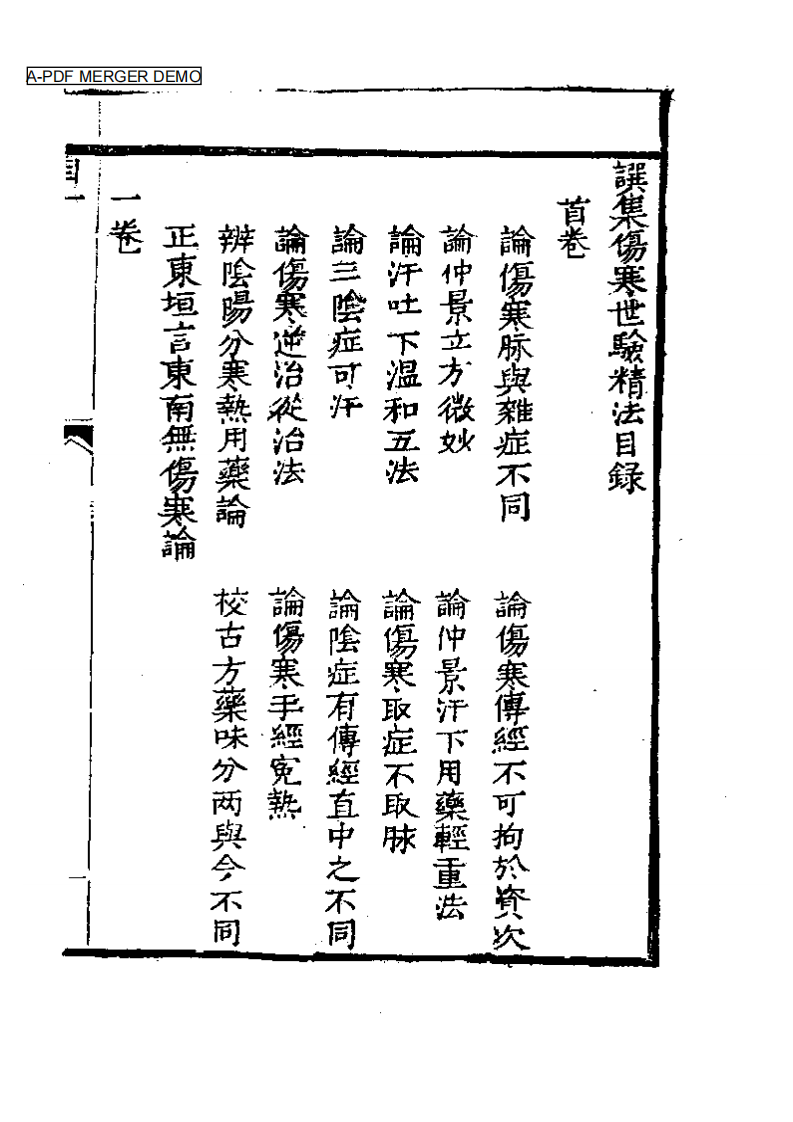 A-PDF MERGER DEMO
譔集傷寒世驗精法目録
首卷
論傷寒脉與雜症不同
論傷寒傳經不可拘於資次
論仲景立方微妙
論仲景汗下用藥輕重法
論汗吐下溫和五法
論傷寒取症不取脉
論三陰症可汗
論陰症有傳經直中之不同
論傷寒逆治從治法
論傷寒手經寃熱
辨陰陽分寒熱用藥論
校古方藥味分两與今不同
正東垣言東南無傷寒論
一卷
目一
一